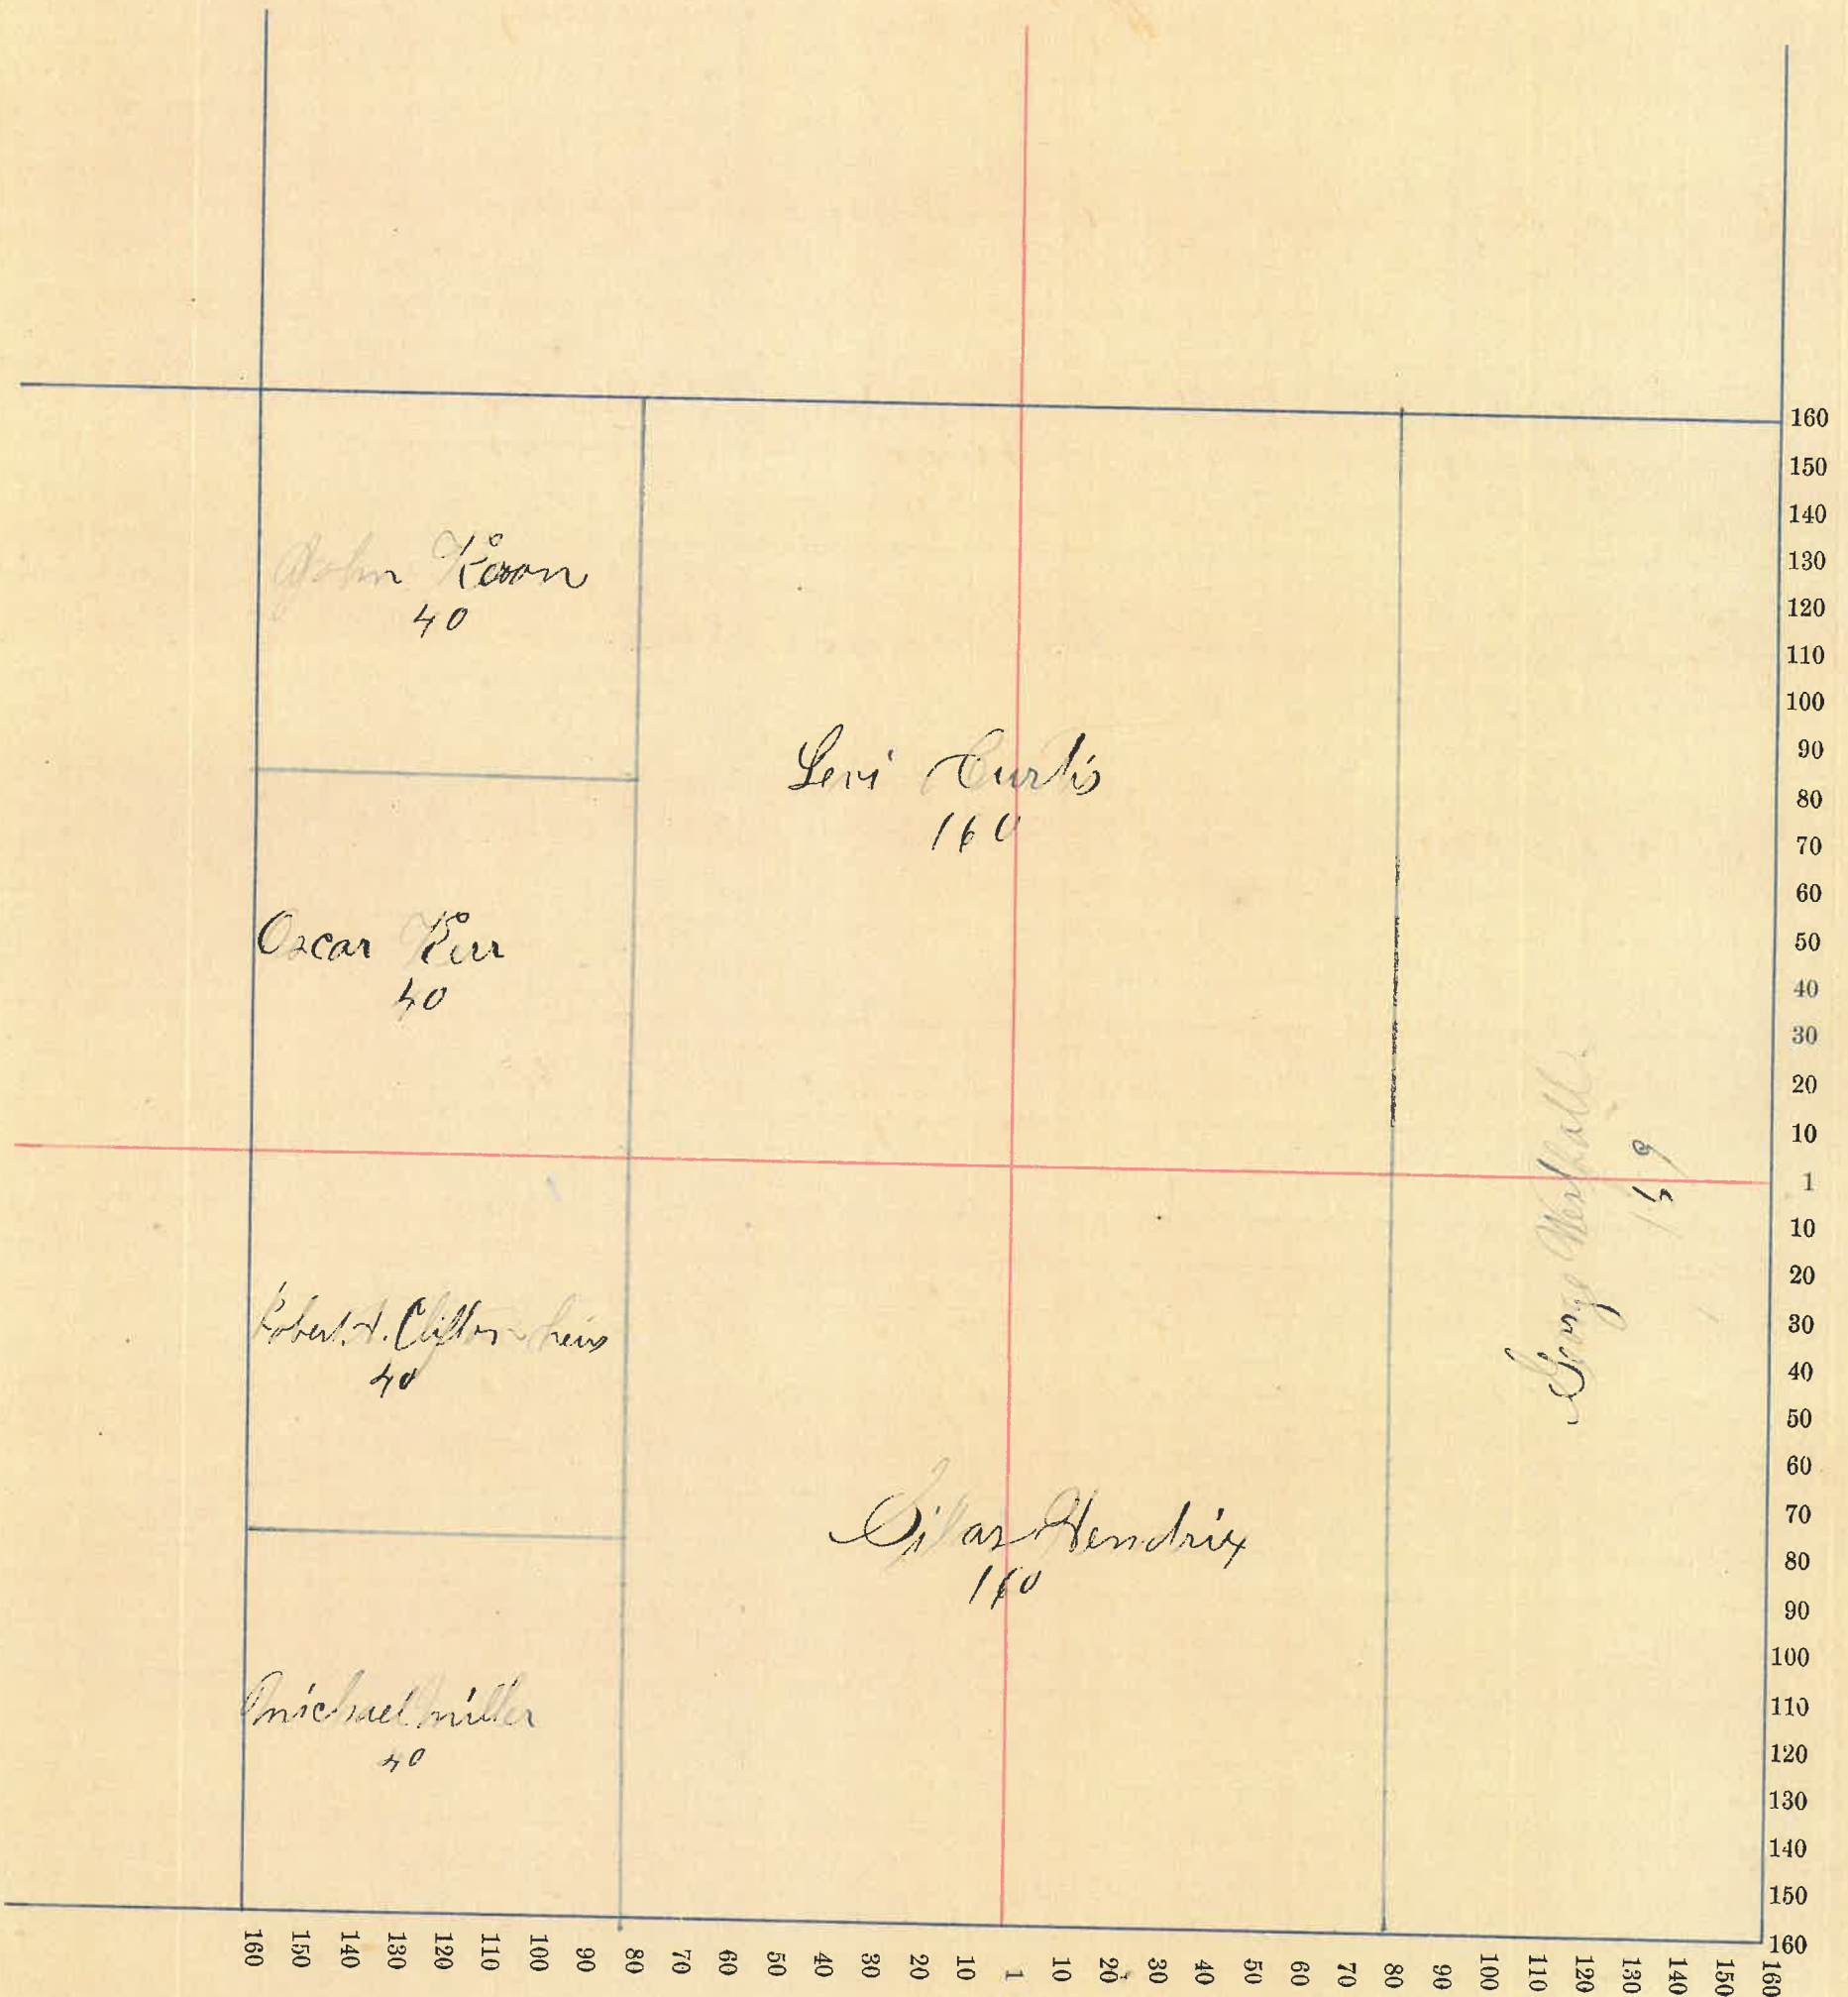 John Koon
40
Levi Curtis
160
Oscar Kerr
40
Robert. A. Clifton heirs
40
Silas Hendrix
160
Michael Miller
40
George Westhall
159
160
150
140
130
120
110
100
90
80
70
60
50
40
30
20
10
1
10
20
30
40
50
60
70
80
90
100
110
120
130
140
150
160
160 150 140 130 120 110 100 90 80 70 60 50 40 30 20 10 1 10 20 30 40 50 60 70 80 90 100 110 120 130 140 150 160